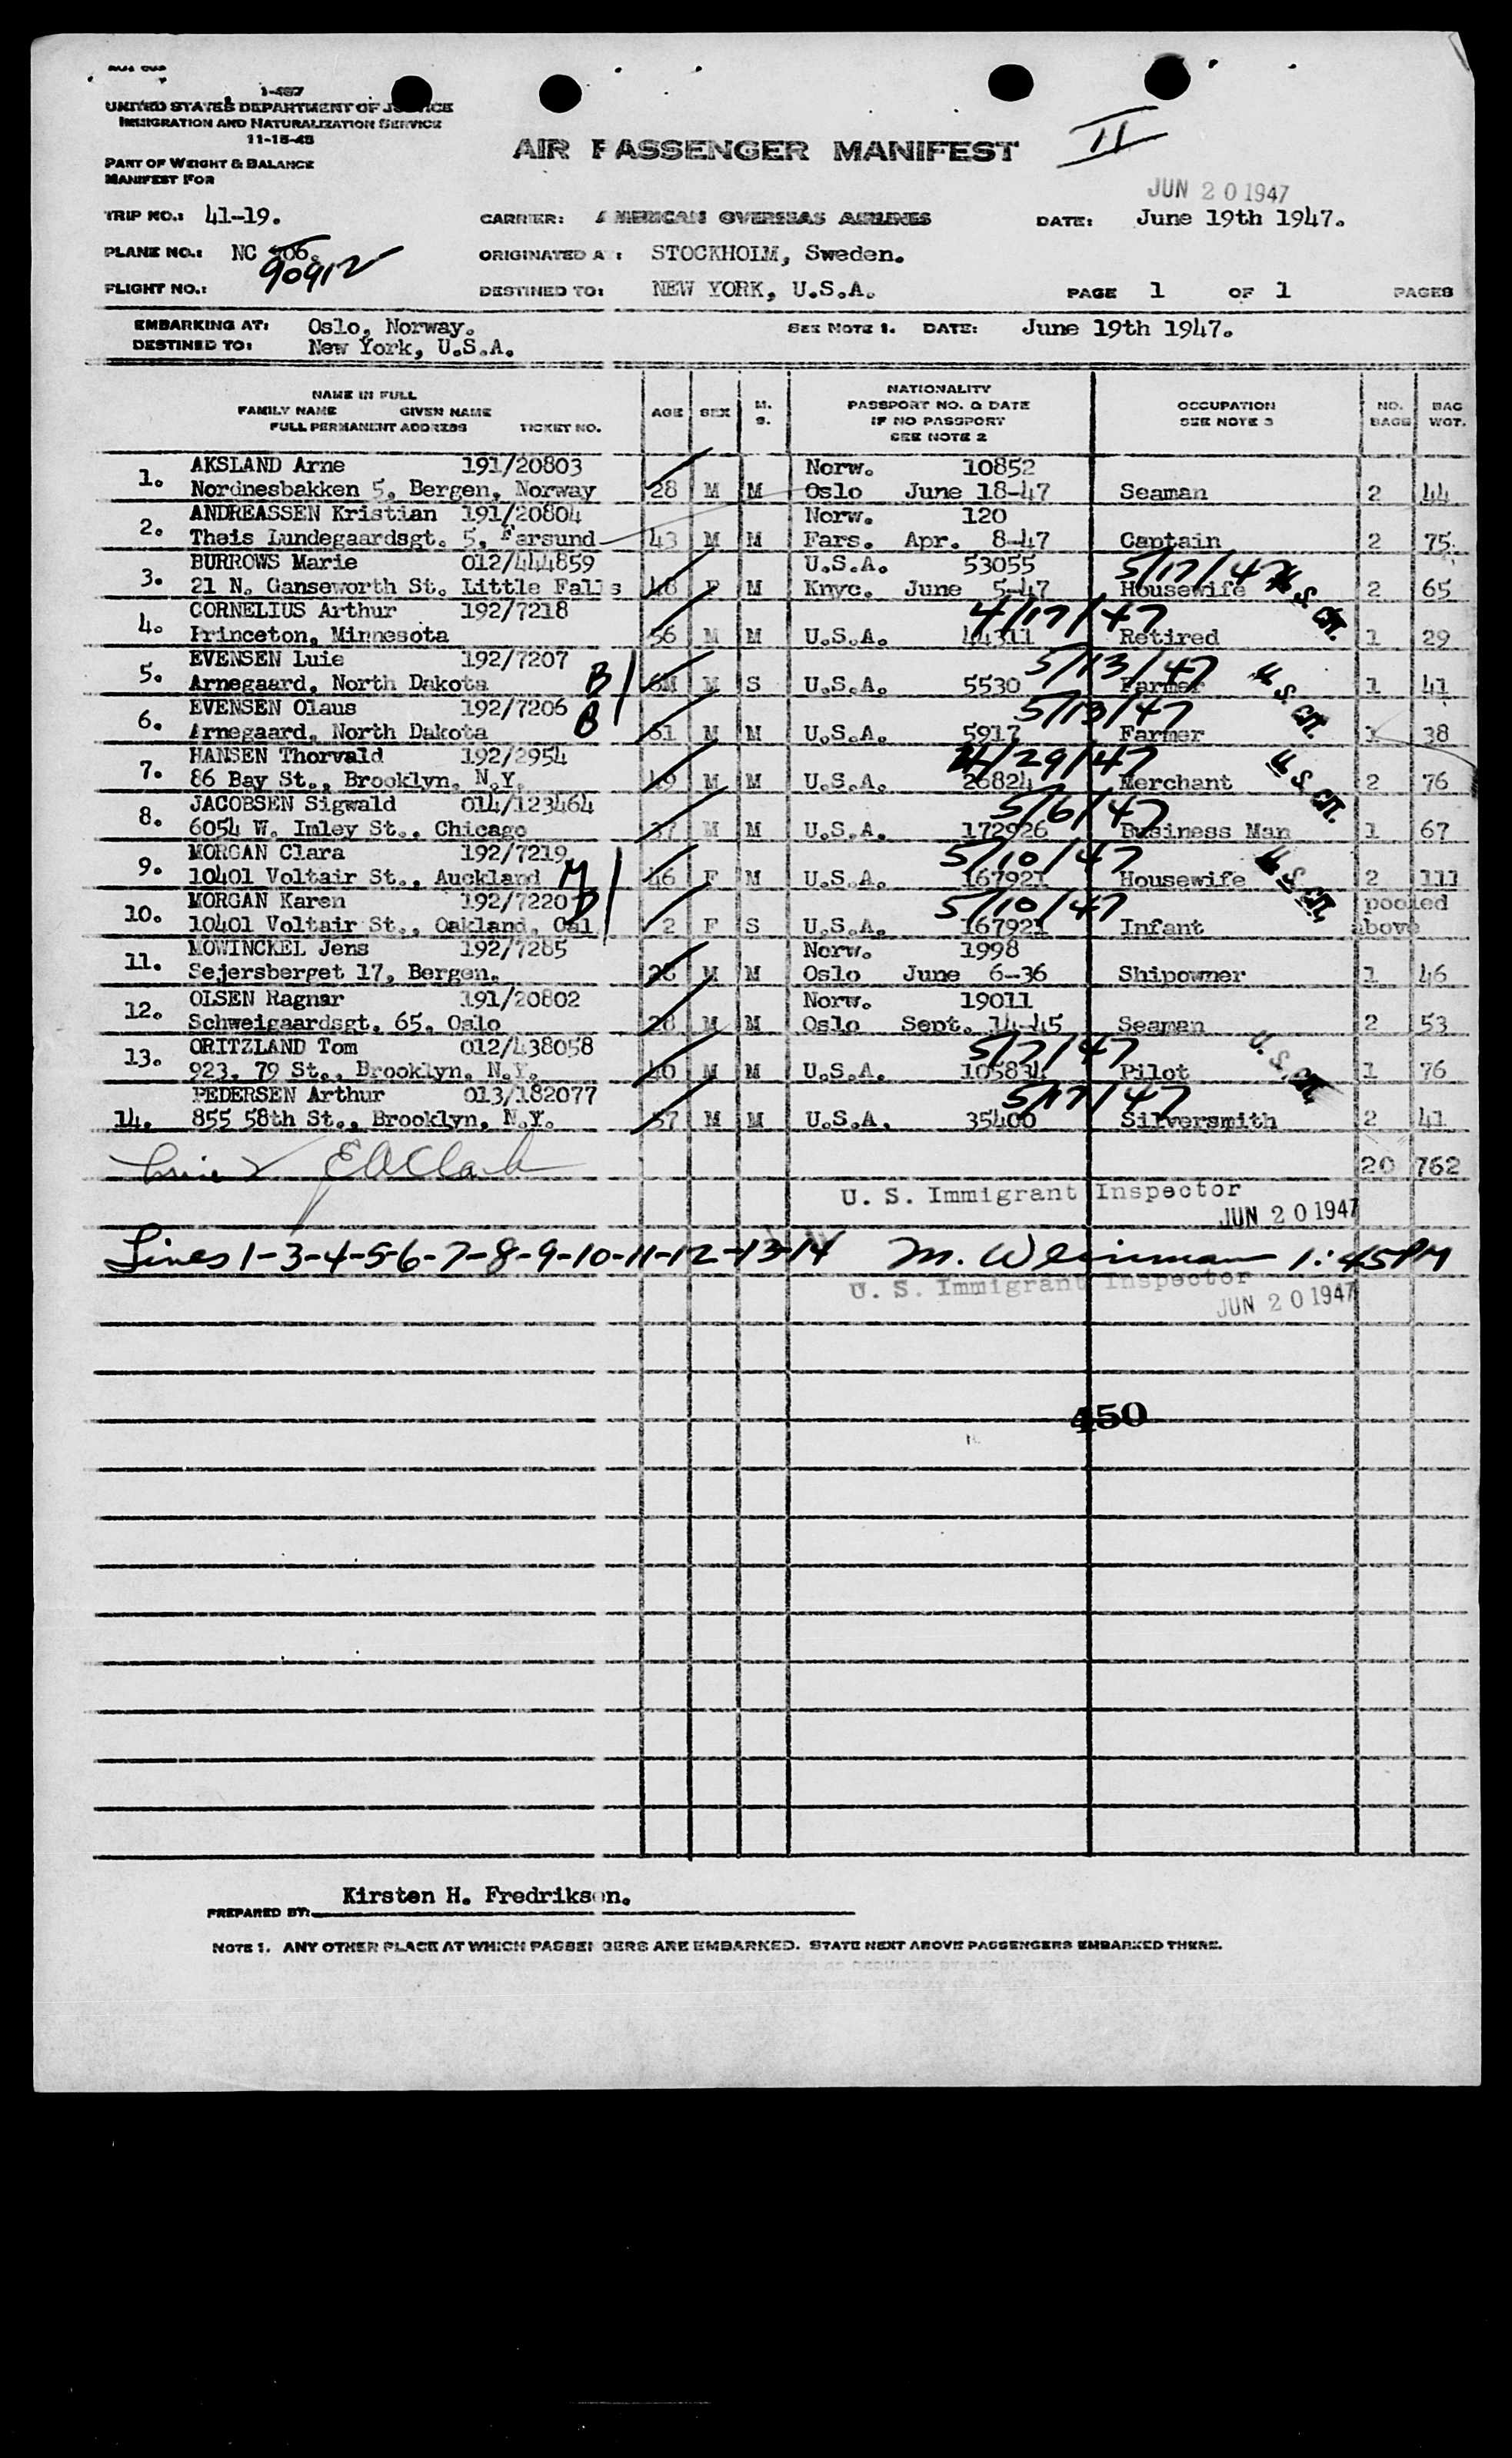 1-467
UNITED STATES DEPARTMENT OF JUSTICE
IMMIGRATION AND NATURALIZATION SERVICE
11-15-45
PART OF WEIGHT & BALANCE
MANIFEST FOR
AIR PASSENGER MANIFEST
II
JUN 20 1947
TRIP NO.: 41-19. CARRIER: AMERICAN OVERSEAS AIRLINES DATE: June 19th 1947.
PLANE NO.: NC 90912 ORIGINATED AT: STOCKHOLM, Sweden.
FLIGHT NO.: DESTINED TO: NEW YORK, U.S.A. PAGE 1 OF 1 PAGES
EMBARKING AT: Oslo, Norway. SEE NOTE 1. DATE: June 19th 1947.
DESTINED TO: New York, U.S.A.
NAME IN FULL
FAMILY NAME GIVEN NAME
FULL PERMANENT ADDRESS TICKET NO. AGE SEX M. S. NATIONALITY PASSPORT NO. & DATE IF NO PASSPORT SEE NOTE 2 OCCUPATION SEE NOTE 3 NO. BAGS BAG WGT.
1. AKSLAND Arne 191/20803 Norw. 10852
Nordnesbakken 5, Bergen, Norway 28 M M Oslo June 18-47 Seaman 2 44
2. ANDREASSEN Kristian 191/20804 Norw. 120
Theis Lundegaardsgt. 5, Farsund 43 M M Fars. Apr. 8-47 Captain 2 75
3. BURROWS Marie 012/444859 U.S.A. 53055 5/17/47
21 N. Ganseworth St. Little Falls 48 F M Knyc. June 5-47 Housewife 2 65
U.S. CIT.
4. CORNELIUS Arthur 192/7218 4/17/47
Princeton, Minnesota 56 M M U.S.A. 44311 Retired 1 29
5. EVENSEN Luie 192/7207 5/13/47
Arnegaard, North Dakota B M S U.S.A. 5530 Farmer 1 41
U.S. CIT.
6. EVENSEN Olaus 192/7206 5/13/47
Arnegaard, North Dakota B 61 M M U.S.A. 5917 Farmer 1 38
7. HANSEN Thorvald 192/2954 4/29/47
86 Bay St., Brooklyn, N.Y. 49 M M U.S.A. 26824 Merchant 2 76
U.S. CIT.
8. JACOBSEN Sigwald 014/123464 5/6/47
6054 W. Imley St., Chicago 37 M M U.S.A. 172926 Business Man 1 67
9. MORGAN Clara 192/7219 5/10/47
10401 Voltair St., Auckland M 46 F M U.S.A. 167921 Housewife 2 111
U.S. CIT.
10. MORGAN Karen 192/7220 D 5/10/47 pooled
10401 Voltair St., Oakland, Cal 2 F S U.S.A. 167921 Infant above
11. MOWINCKEL Jens 192/7285 Norw. 1998
Sejersberget 17, Bergen. 28 M M Oslo June 6-36 Shipowner 1 46
12. OLSEN Ragnar 191/20802 Norw. 19011
Schweigaardsgt. 65, Oslo 28 M M Oslo Sept. 14-45 Seaman 2 53
13. ORITZLAND Tom 012/438058 5/7/47
923, 79 St., Brooklyn, N.Y. 40 M M U.S.A. 105834 Pilot 1 76
U.S. CIT.
PEDERSEN Arthur 013/182077 5/17/47
14. 855 58th St., Brooklyn, N.Y. 57 M M U.S.A. 35400 Silversmith 2 41
Line 2 E A Clark 20 762
U. S. Immigrant Inspector
JUN 20 1947
Lines 1-3-4-5-6-7-8-9-10-11-12-13-14 M. Weinman 1:45PM
U. S. Immigrant Inspector
JUN 20 1947
450
Kirsten H. Fredriksen.
PREPARED BY:
NOTE 1. ANY OTHER PLACE AT WHICH PASSENGERS ARE EMBARKED. STATE NEXT ABOVE PASSENGERS EMBARKED THERE.